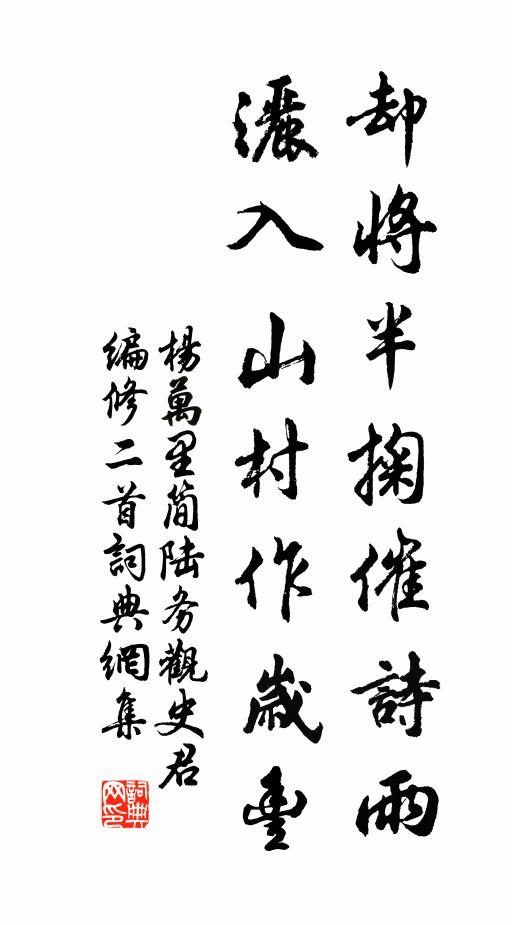 却將半掬催詩雨
灑入山村作歲豐
楊萬里简陆务觀史君
編修二首詞典網集
詞典
网印